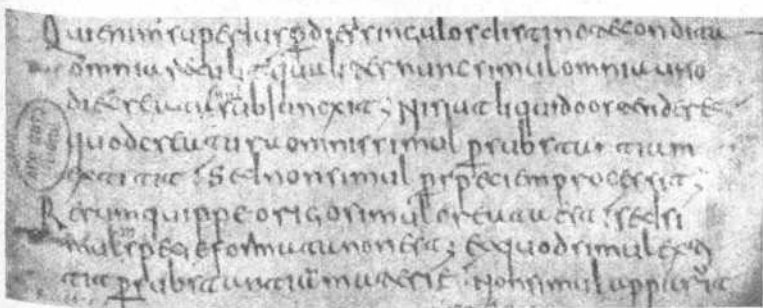 Qui enim superius p dies singulos distincte condita
omnia retulit qualiter nunc simul omnia uno
die creata; Nisi ut liquido ostenderet
quod creatura omnis simul p substantiam
extitit; Sed non simul p speciem processit;
Rerum quippe origo simul creata est; sed si
mul specie formata non est; et quod simul ex
p substantiā materie; Non simul